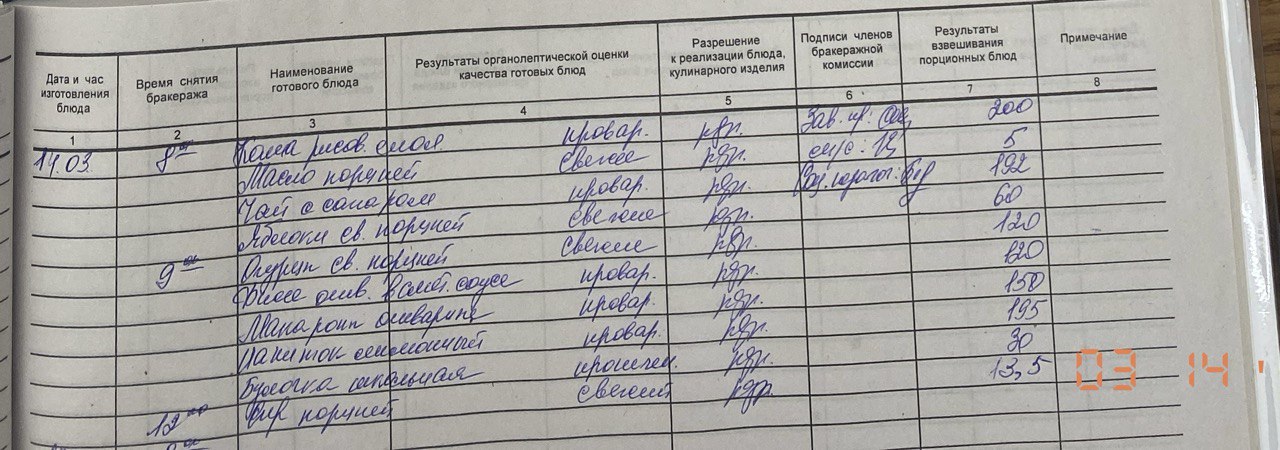 Дата и час изготовления блюда | Время снятия бракеража | Наименование готового блюда | Результаты органолептической оценки качества готовых блюд | Разрешение к реализации блюда, кулинарного изделия | Подписи членов бракеражной комиссии | Результаты взвешивания порционных блюд | Примечание
1 2 3 4 5 6 7 8
14.03 8 Каша рисов. провар. рзр. Зав. пр: 200
Масло порцией свежее рзр. м/с: 5
Чай с сахаром провар. рзр. 192
Яблоки св. порцией свежие рзр. 60
9 Огурцы св. порцией свежие рзр. 120
в смет. соусе провар. рзр. 120
Макароны отварные провар. рзр. 150
Напиток лимонный провар. рзр. 195
Булочка школьная пропечен. рзр. 30
12 Сыр порцией свежий рзр. 13,5
03 14 '